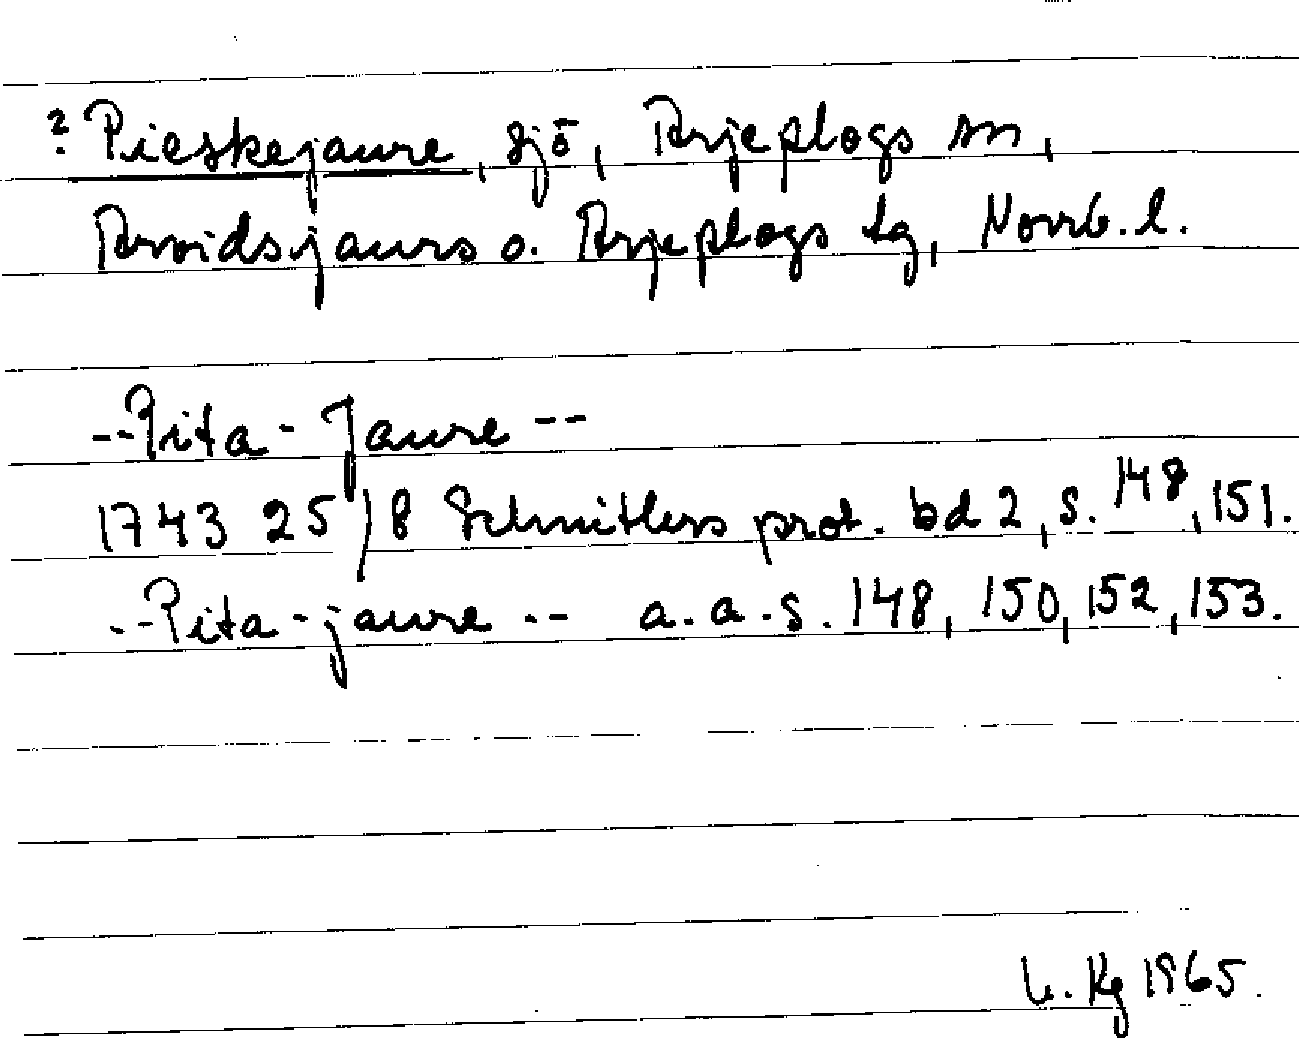 ? Pieskejaure, sjö, Arjeplogs sn,
Arvidsjaurs o. Arjeplogs tg, Norrb. l.
--Pita-Jaure--
1743 25/8 Schnitlers prot. bd 2, s. 148, 151.
--Pita-jaure-- a.a.s. 148, 150, 152, 153.
Kg 1965.